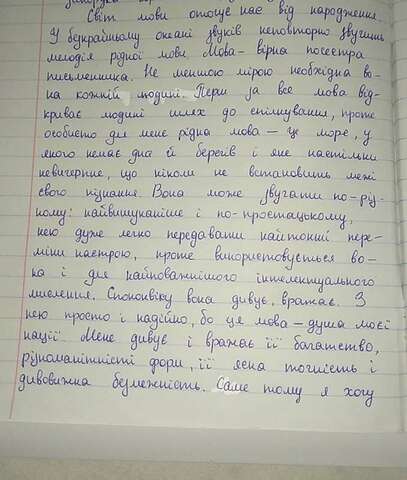 Світ мови оточує нас від народження.
У безкрайньому океані звуків неповторно звучить
мелодія рідної мови. Мова - вірна посестра
письменника. Не меншою мірою необхідна во-
на кожній людині. Перш за все мова від-
криває людині шлях до спілкування, проте
особисто для мене рідна мова - це море, у
якого немає дна й берегів і яке настільки
невичерпне, що ніколи не встановить межі
свого пізнання. Вона може звучати по-різ-
ному: найвишуканіше і по-простацькому,
нею дуже легко передавати найтонші пере-
міни настрою, проте використовується во-
на і для найповажнішого інтелектуального
мислення. Споконвіку вона дивує, вражає. З
нею просто і надійно, бо ця мова - душа моєї
нації. Мене дивує і вражає її багатство,
різноманітність форм, її ясна точність і
дивовижна безмежність. Саме тому я хочу